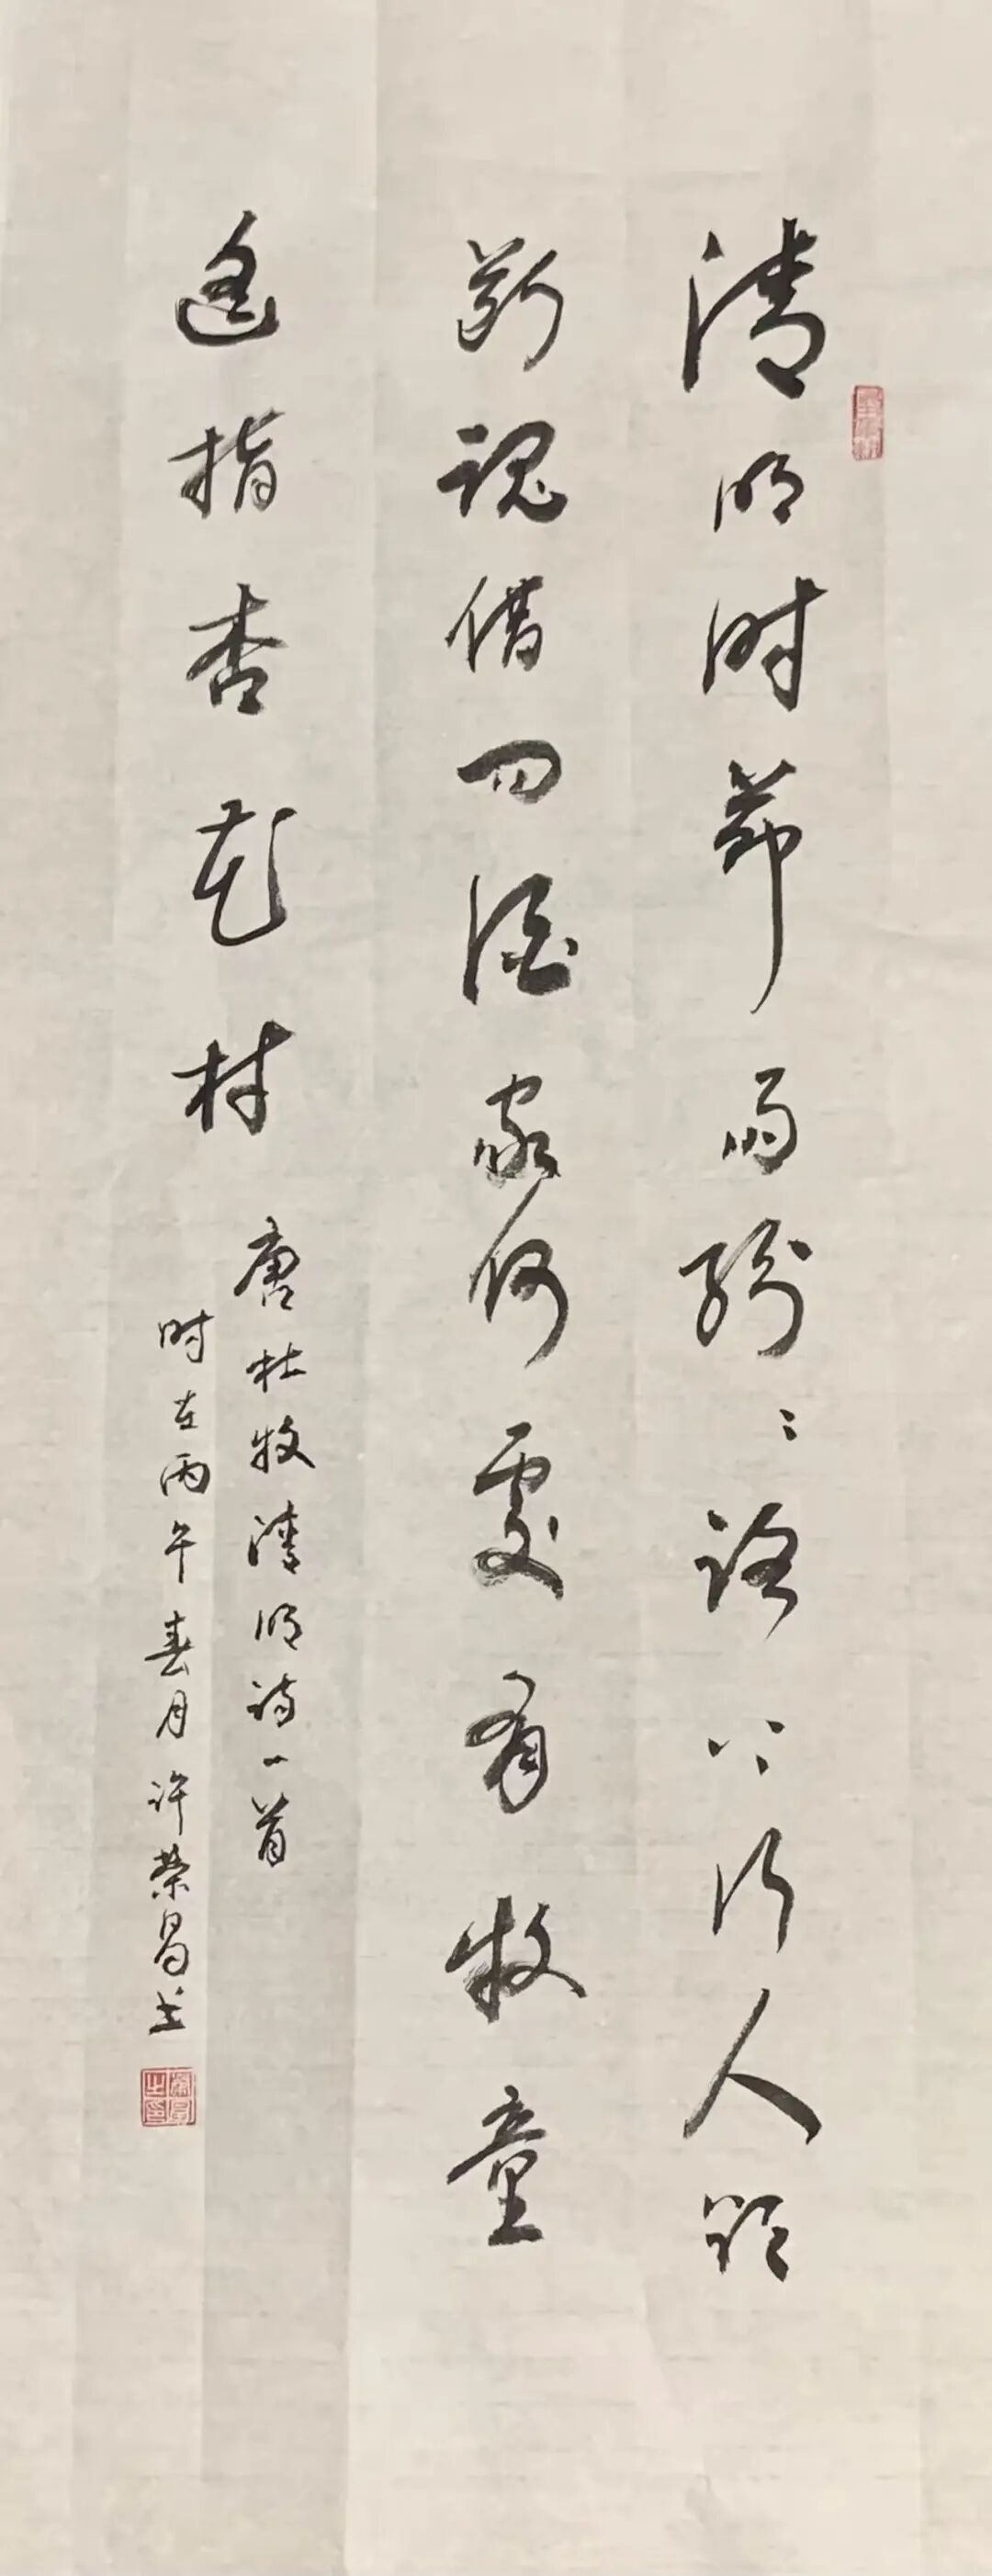 清明时節雨紛〻路上行人欲
断魂借问酒家何處有牧童
遥指杏花村
唐杜牧清明诗一首
时在丙午春月许荣昌书
荣昌之印